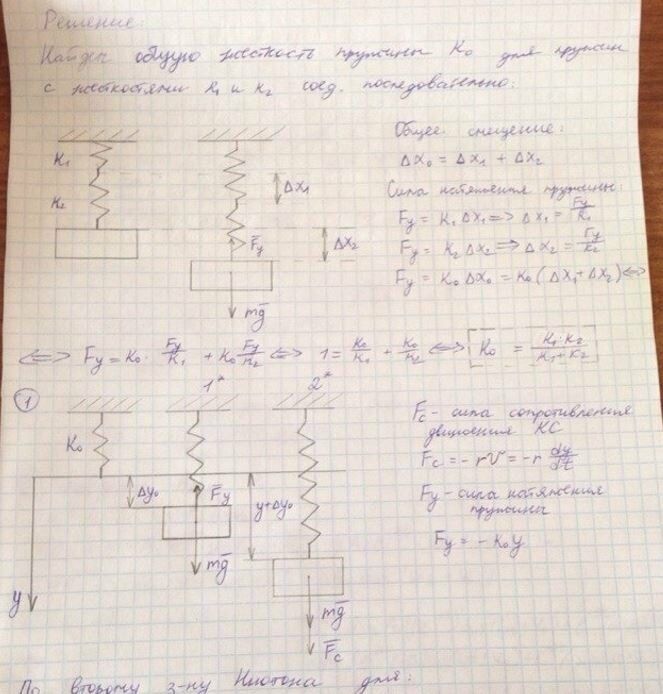 Решение:
Найдём общую жесткость пружины K₀ для пружин
с жесткостями K₁ и K₂ соед. последовательно:
Общее смещение:
Δx₀ = Δx₁ + Δx₂
Сила натяжения пружины:
Fy = K₁ Δx₁ => Δx₁ = Fy/K₁
Fy = K₂ Δx₂ => Δx₂ = Fy/K₂
Fy = K₀ Δx₀ = K₀ (Δx₁ + Δx₂) <=>
K₁
K₂
Δx₁
F̄y
Δx₂
mḡ
<=> Fy = K₀ · Fy/K₁ + K₀ Fy/K₂ <=> 1 = K₀/K₁ + K₀/K₂ <=> K₀ = K₁·K₂/K₁+K₂
1
1*
2*
K₀
Δy₀
F̄y
y+Δy₀
mḡ
y
mḡ
F̄c
Fc - сила сопротивления
движения КС
Fc = -rV = -r dy/dt
Fy - сила натяжения
пружины
Fy = -K₀y
По второму з-ну Ньютона для: